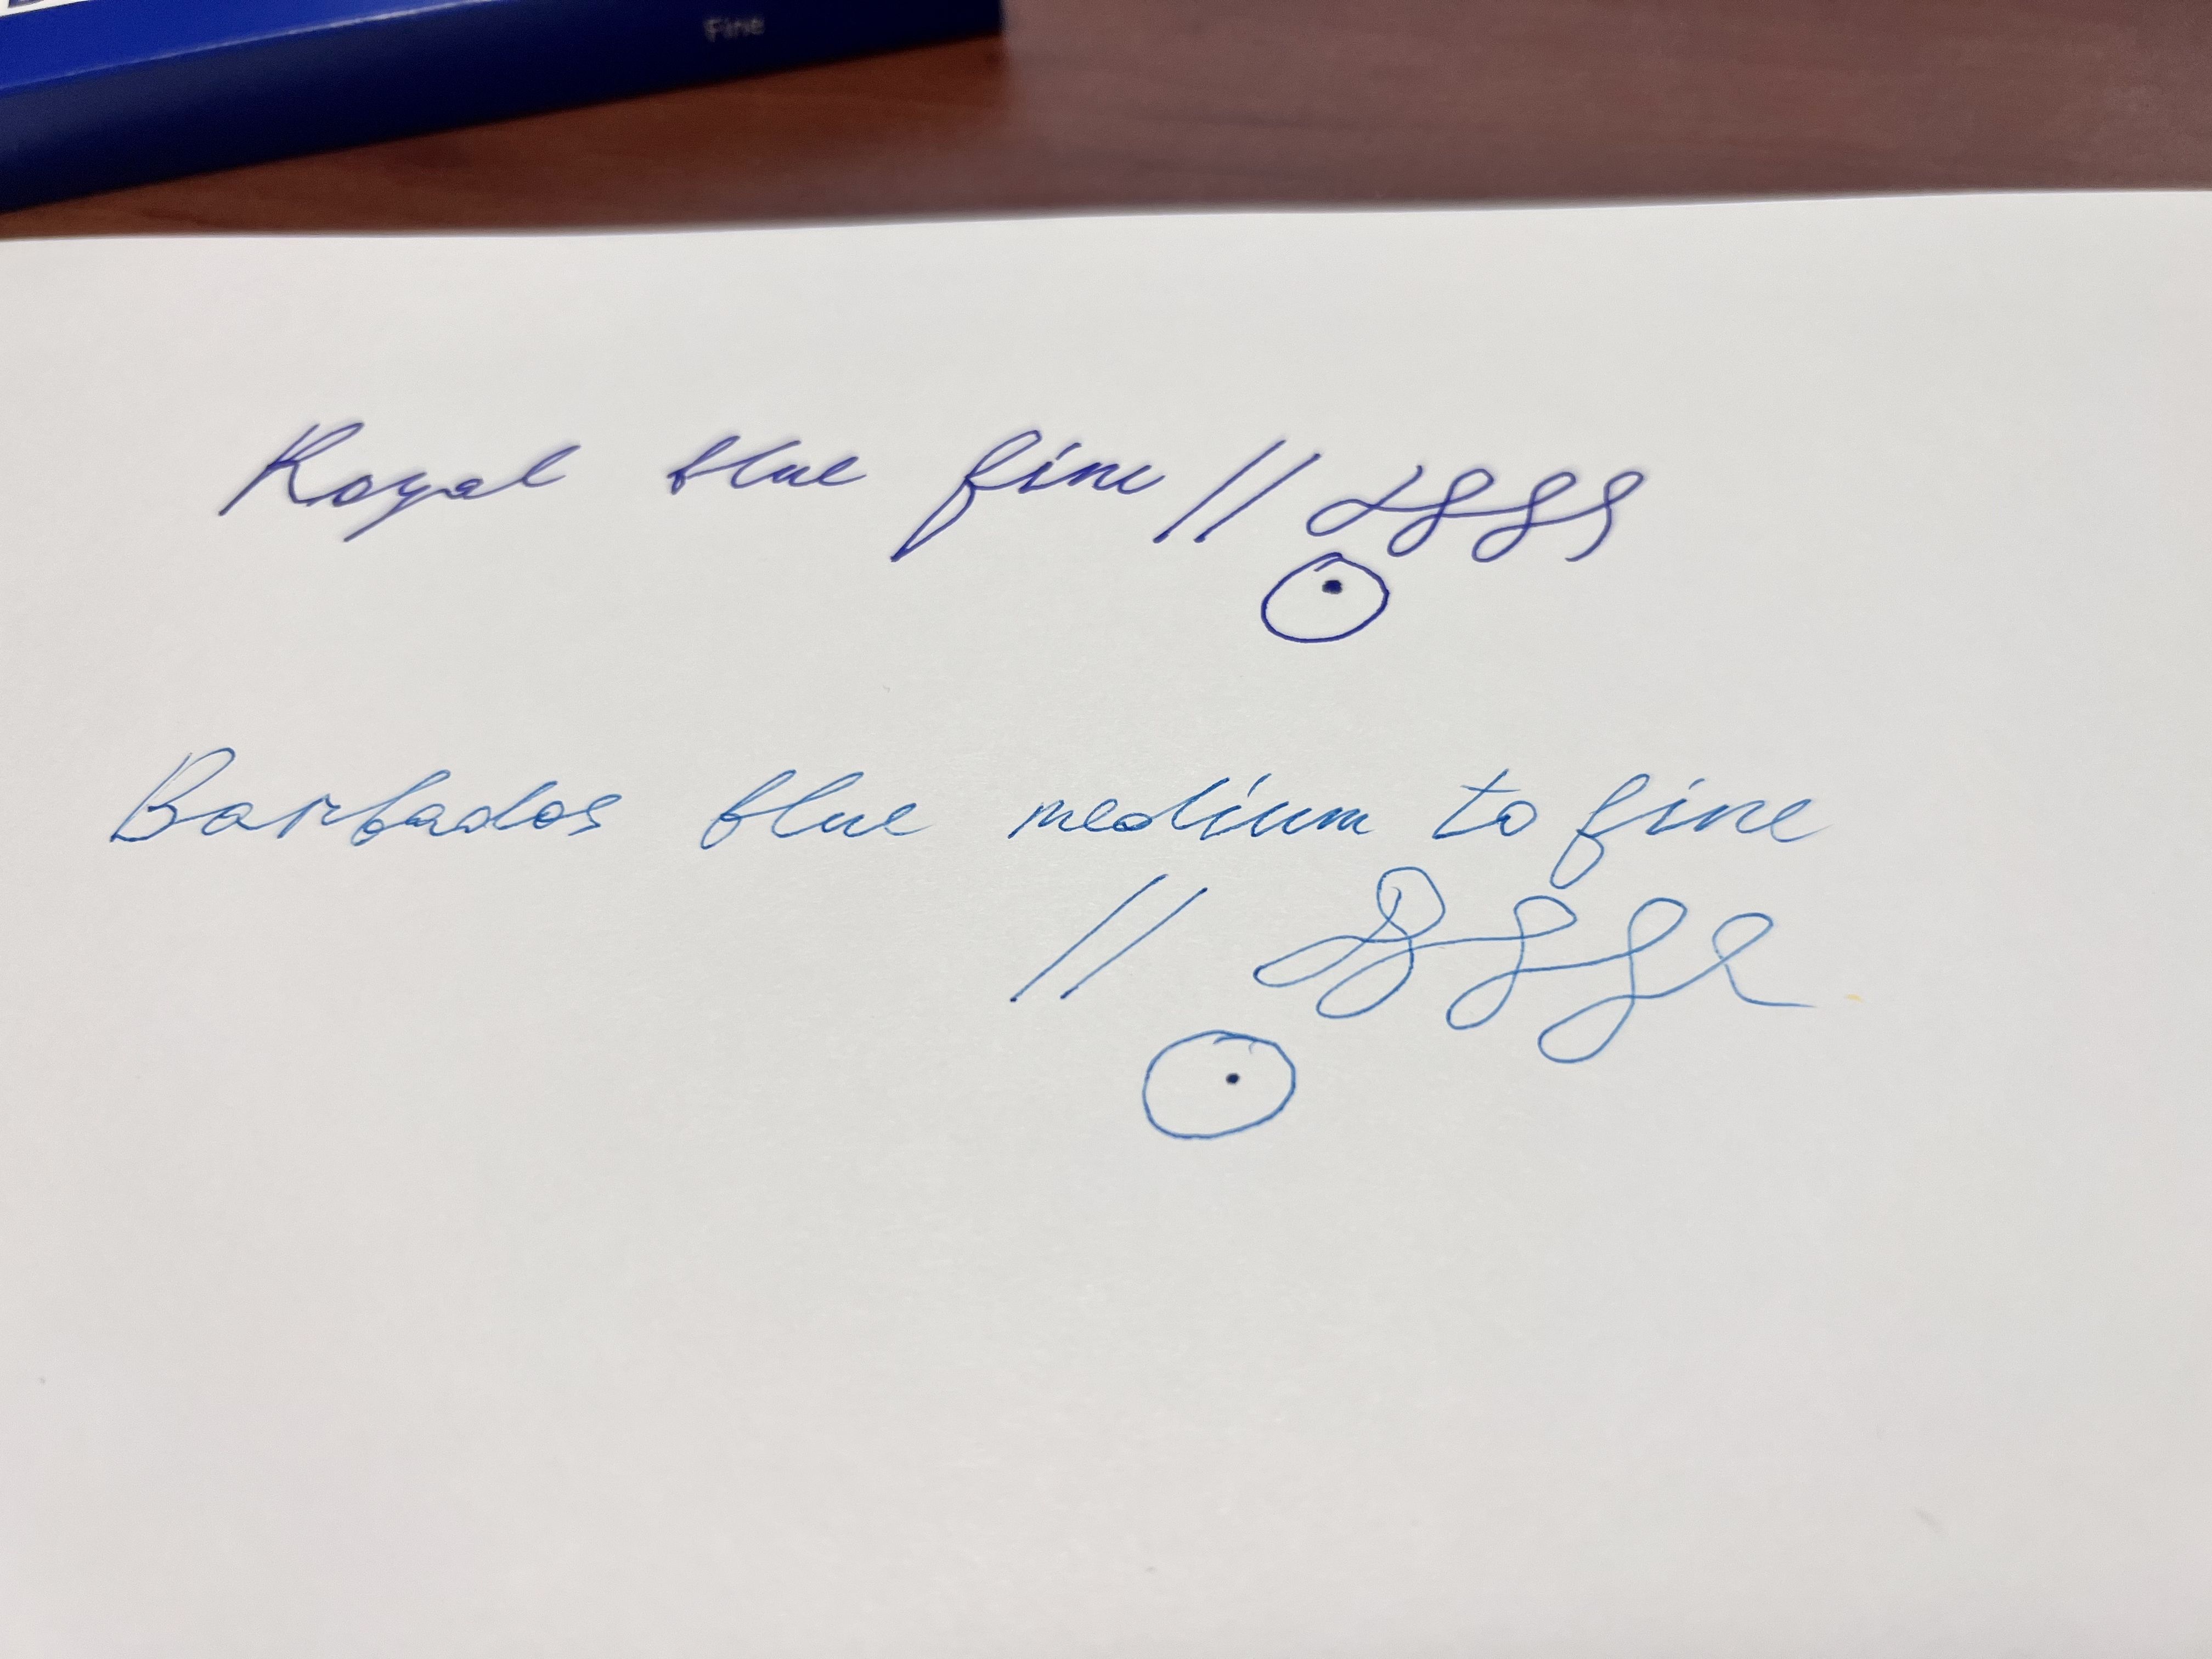 Fine
Royal blue fine //
Barbados blue medium to fine
//